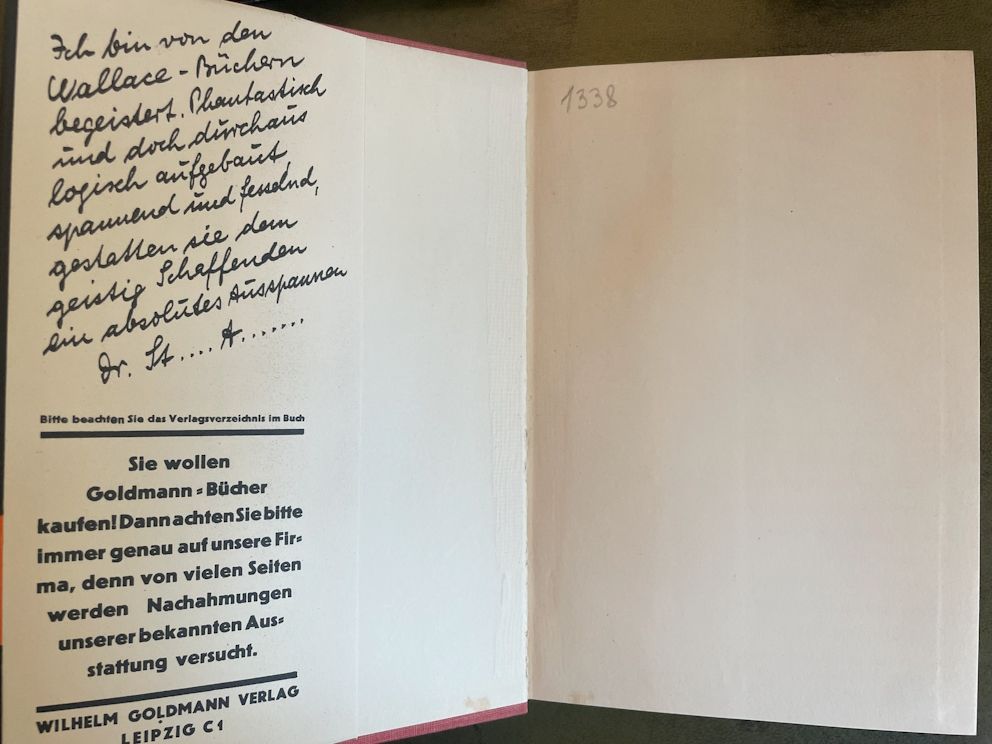 Ich bin von den
Wallace-Büchern
begeistert. Phantastisch
und doch durchaus
logisch aufgebaut,
spannend und fesselnd,
gestatten sie dem
geistig Schaffenden
ein absolutes Ausspannen
Dr. St.... A.......
Bitte beachten Sie das Verlagsverzeichnis im Buch
Sie wollen
Goldmann-Bücher
kaufen! Dann achten Sie bitte
immer genau auf unsere Fir-
ma, denn von vielen Seiten
werden Nachahmungen
unserer bekannten Aus-
stattung versucht.
WILHELM GOLDMANN VERLAG
LEIPZIG C 1
1338